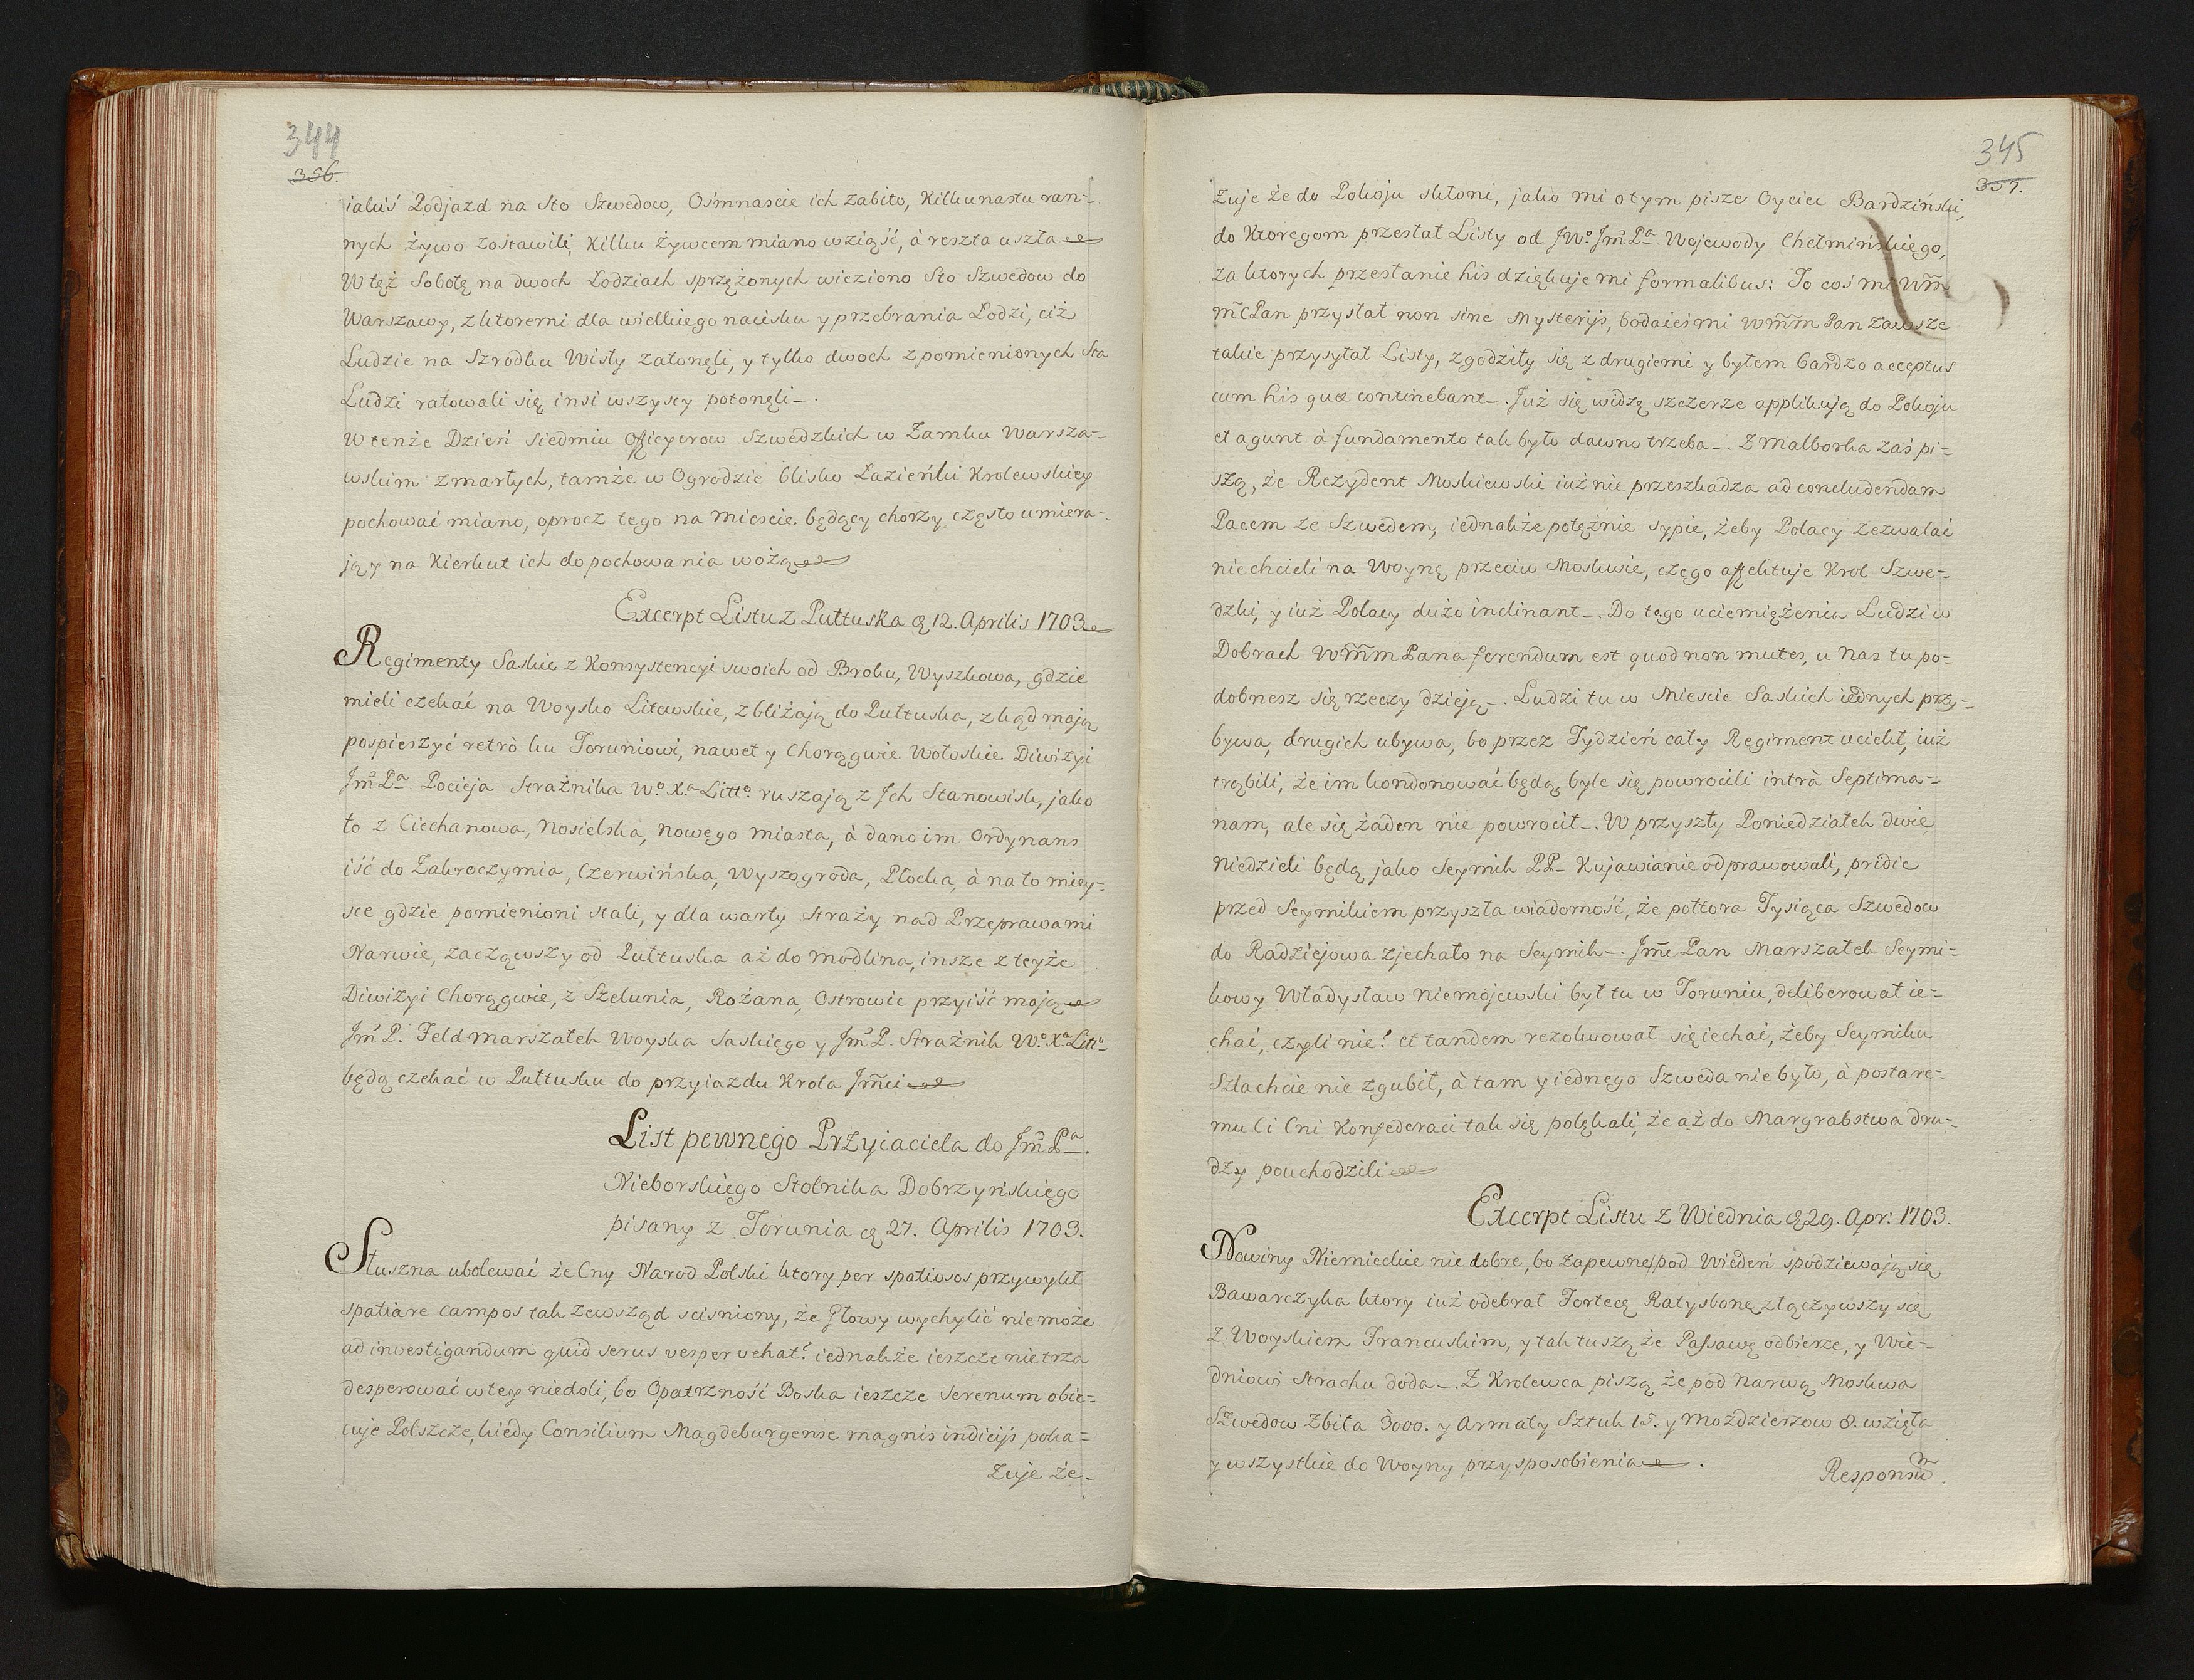 344
356.
iakiś Podjazd na Sto Szwedow, Ośmnaście ich zabito, Kilkunastu ran-
nych żywo zostawili, Kilku żywcem miano wziąść, à reszta uszła
W też Sobotę na dwoch Łodziach sprzężonych wieziono Sto Szwedow do
Warszawy, z ktoremi dla wielkiego nacisku y przebrania Łodzi, ciż
Ludzie na Szrodku Wisły zatonęli, y tylko dwoch z pomienionych Sta
Ludzi ratowali się, insi wszyscy potonęli-.
W tenże Dzień Siedmiu Officyerow Szwedzkich w Zamku Warsza-
wskim zmarłych, tamże w Ogrodzie blisko Łazieńki Krolewskiey
pochować miano, oprocz tego na miescie będący chorzy często umiera-
jąy na Kierkut ich do pochowania wożą
Excerpt Listu z Pułtuska ą 12. Aprilis 1703
Regimenty Saskie z Konsystencyi swoich od Broku, Wyszkowa, gdzie
mieli czekać na Woysko Litewskie, zbliżają do Pułtuska, zkąd mają
pospieszyć retrò ku Toruniowi, nawet y Chorągwie Wołoskie Diwizyi
Jm̃ Pa. Pocieja Strażnika Wo. Xa. Litto. ruszają z Jch Stanowisk, jako
to z Ciechanowa, Nosielska, Nowego miasta, à dano im Ordynans
iść do Zakroczymia, Czerwińska, Wyszogroda, Płocka, à na to miey-
sce gdzie pomienioni stali, y dla warty Straży nad Przeprawami
Narwie, zacząwszy od Pułtuska aż do Modlina, insze z teyże
Diwizyi Chorągwie, z Szelunia, Rożana, Ostrowic przyiść mają
Jm̃ P. Feldmarszałek Woyska Saskiego y Jm̃ P. Strażnik Wo. Xa. Litto.
będą czekać w Pułtusku do przyiazdu Krola Jm̃ci
List pewnego Przyiaciela do Jm̃ Pa.
Nieborskiego Stolnika Dobrzyńskiego
pisany z Torunia ą 27. Aprilis 1703.
Słuszna ubolewać że Cny Narod Polski ktory per spatiosos przywykł
spatiare campos tak zewsząd scisniony, że Głowy wychylić nie może
ad investigandum quid serus vesper vehat? iednakże ieszcze nie trza
desperować w tey niedoli, bo Opatrzność Boska ieszcze Serenum obie-
cuje Polszcze, kiedy Consilium Magdeburgense magnis indicijs poka-
zuje że-
345
357.
zuje że do Pokoju skłoni, jako mi o tym pisze Oyciec Bardziński,
do Ktoregom przesłał Listy od JWo. Jm̃ Pa. Wojewody Chełmińskiego,
za ktorych przesłanie his dziękuje mi formalibus: To coś mi Wm̃
m̃ć Pan przysłał non sine Mysterijs, bodaieś mi Wm̃m̃ Pan zawsze
takie przysyłał Listy, zgodziły się z drugiemi y byłem bardzo acceptus
cum his quæ continebant-. Już się widzę szczerze applikują do Pokoju
et agunt à fundamento tak było dawno trzeba-. Z Malborka zaś pi-
szą, że Rezydent Moskiewski iuż nie przeszkadza ad concludendam
Pacem ze Szwedem, iednakże potężnie sypie, żeby Polacy zezwalać
niechcieli na Woynę przeciw Moskwie, czego affektuje Krol Szwe-
dzki, y iuż Polacy dużo inclinant-. Do tego uciemiężenia Ludzi w
Dobrach Wm̃m̃ Pana ferendum est quod non mutes, u nas tu po-
dobnesz się rzeczy dzieją-. Ludzi tu w Miescie Saskich iednych przy-
bywa, drugich ubywa, bo przez Tydzień cały Regiment uciekł, iuż
trąbili, że im kondonować będą, byle się powrocili intrà Septima-
nam, ale się żaden nie powrocił-. W przyszły Poniedziałek dwie
Niedzieli będą jako Seymik PP- Kujawianie odprawowali, pridie
przed Seymikiem przyszła wiadomość, że połtora Tysiąca Szwedow
do Radziejowa zjechało na Seymik-. Jm̃ć Pan Marszałek Seymi-
kowy Władysław Niemójewski był tu w Toruniu, deliberował ie-
chać, czyli nie? et tandem rezolwował się iechać, żeby Seymiku
Szlachcie nie zgubił, à tam y iednego Szweda nie było, à postare-
mu Ci Cni Konfederaci tak się polękali, że aż do Margrabstwa dru-
dzy pouchodzili
Excerpt Listu z Wiednia ą 29. Apr: 1703.
Nowiny Niemieckie nie dobre, bo zapewne pod Wiedeń spodziewają się
Bawarczyka ktory iuż odebrał Fortecę Ratysbonę, złączywszy się
z Woyskiem Francuskim, y tak tuszą że Passawę odbierze, y Wie-
dniowi strachu doda-. Z Krolewca piszą że pod Narwą Moskwa
Szwedow zbiła 3000. y Armaty Sztuk 15. y Moździerzow 8. wzięła
y wszystkie do Woyny przysposobienia.
Responsũ.